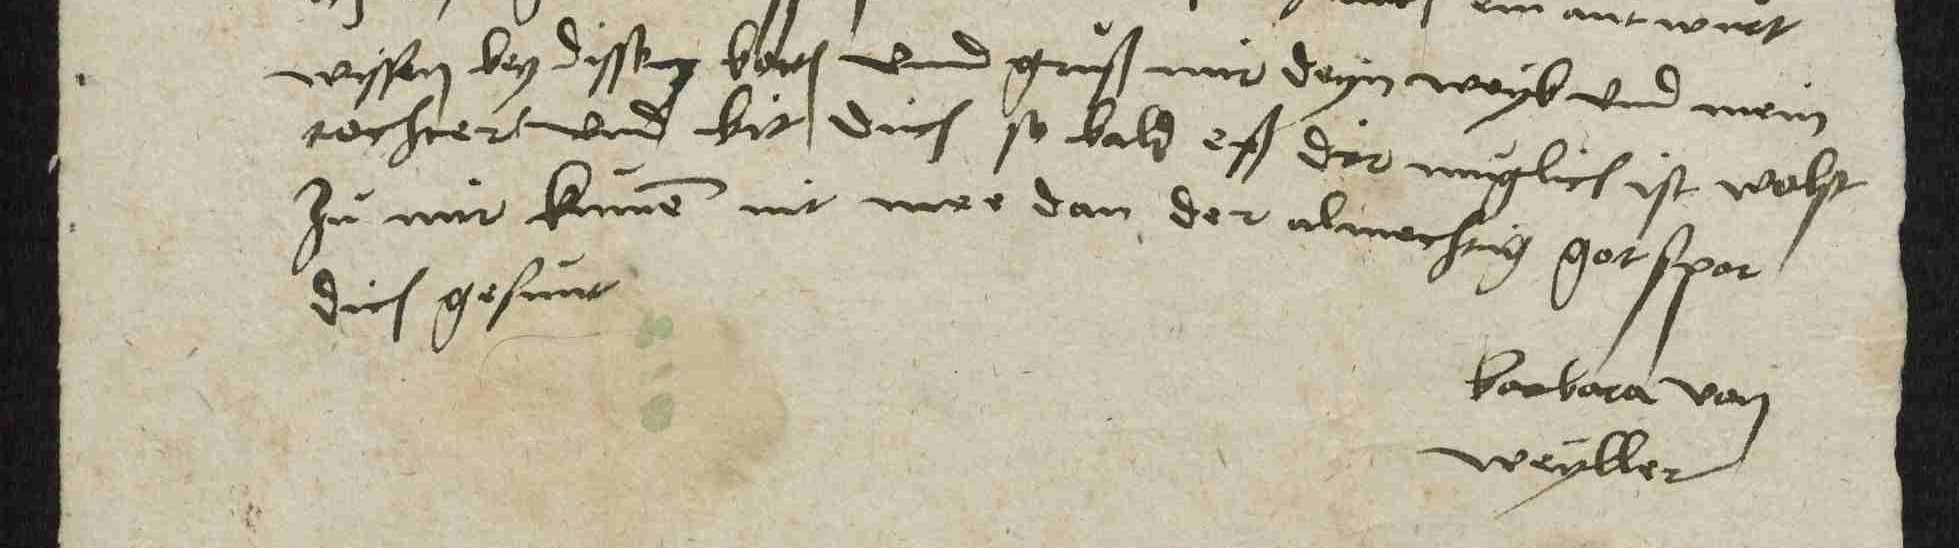 ein antwurt
wissen bey dissem bott und gruß mir deyn weyb und mein
tochter und bit dich so bald eß dir muglich ist welst
zu mir kumē nit mee dan der almechtig got spar
dich gesunt
barbara von
weyller